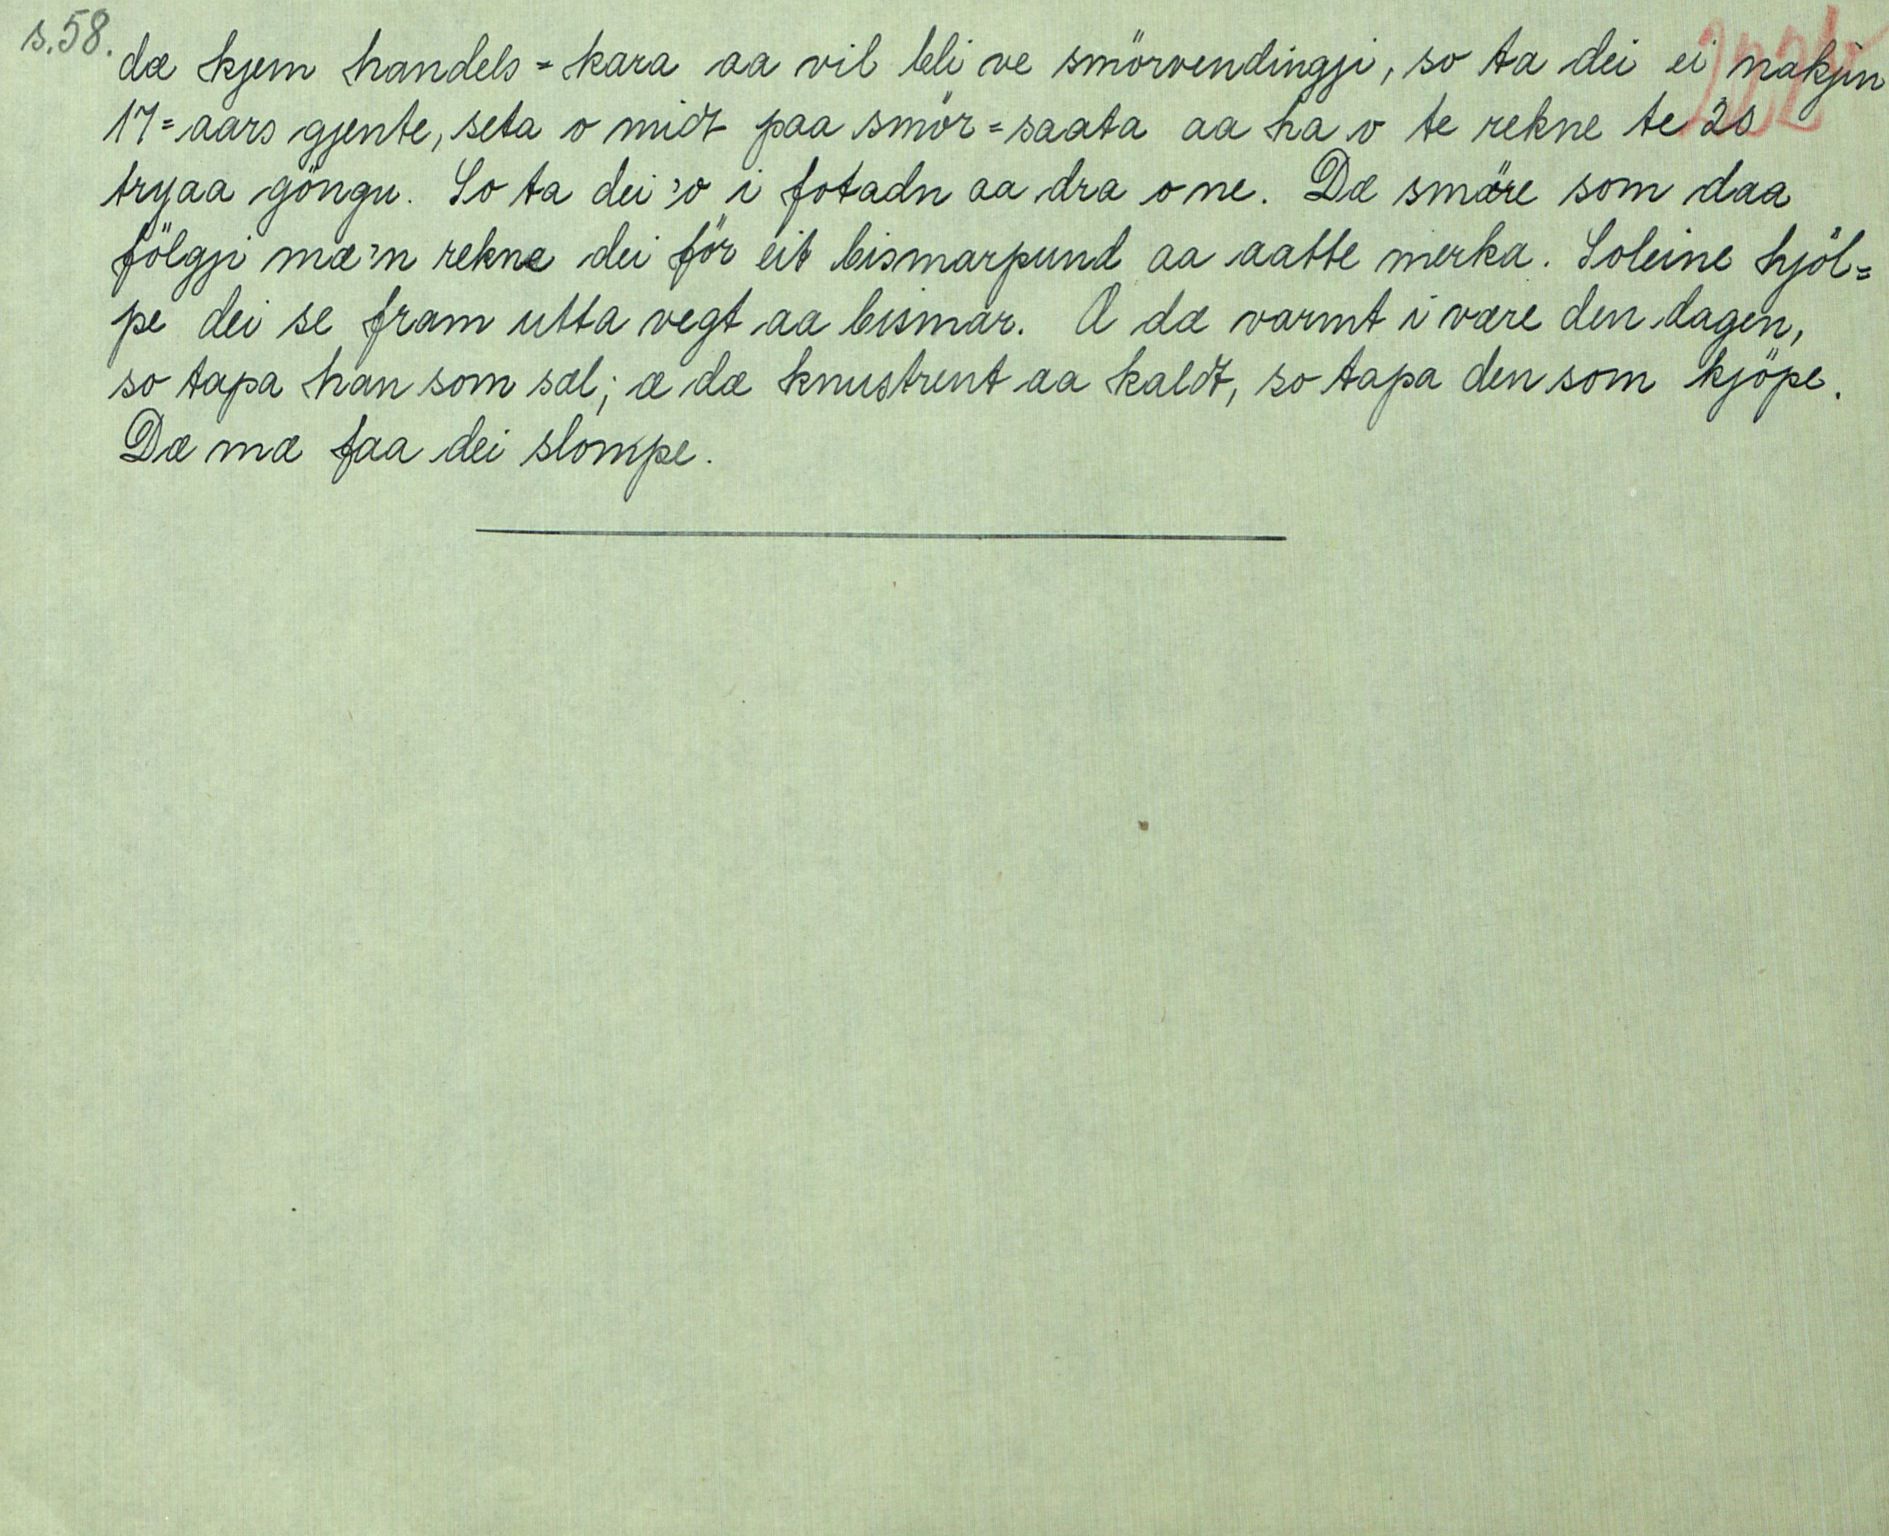 s.58.
dæ kjem handels=kara aa vil bli ve smörvendingji, so ta dei ei nakjin
17=aars gjente, seta o midt paa smör=saata aa ha o te rekne te 20
tryaa göngu. So ta dei 'o i fotadn aa dra o ne. Dæ smöre som daa
fölgji mæ'n rekne dei för eit bismarpund aa aatte merka. Soleine hjöl=
pe dei se fram utta vegt aa bismar. Æ dæ varmt i være den dagen,
so tapa han som sæl; æ dæ knustrent aa kaldt, so tapa den som kjöpe.
Dæ mæ faa dei slompe.